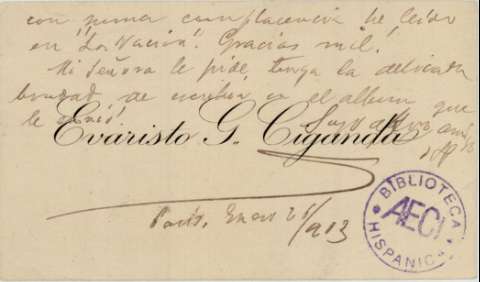 con suma complacencia he leído
en "La Nación". Gracias mil.
Mi Señora le pide, tenga la delicada
bondad de escribir en el album que
le envió.
Suyo
Evaristo G. Ciganda
París, Enero 26/903
BIBLIOTECA
AECI
HISPANICA